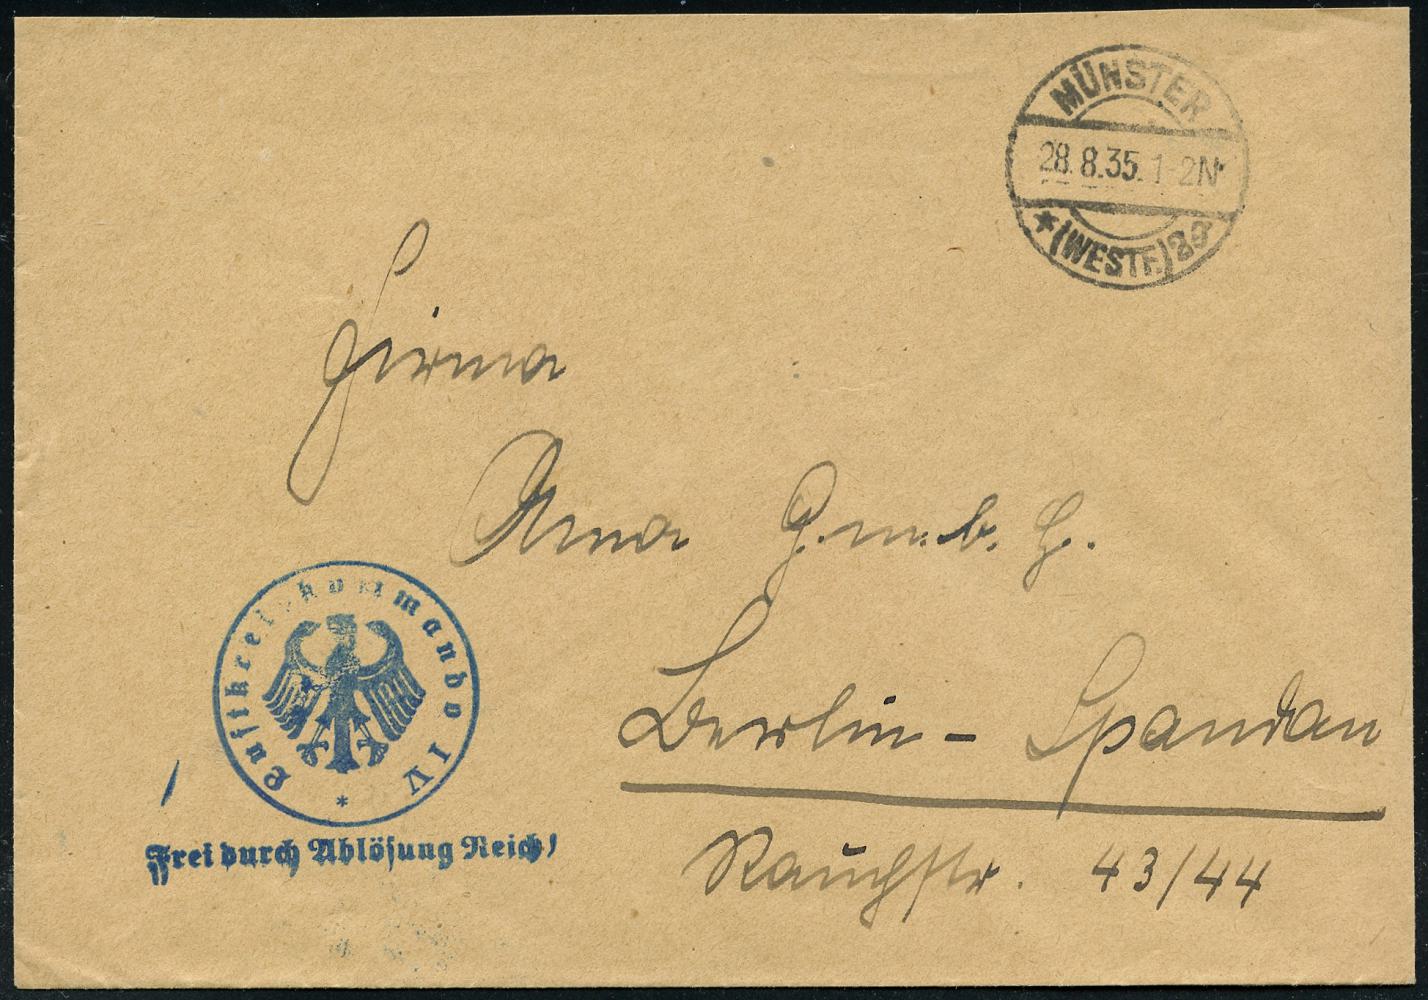 MÜNSTER
28.8.35. 1-2N
* (WESTF.)
Firma
Ama G.m.b.H.
Berlin-Spandau
Rauchstr. 43/44
Luftkreiskommando IV
*
Frei durch Ablösung Reich